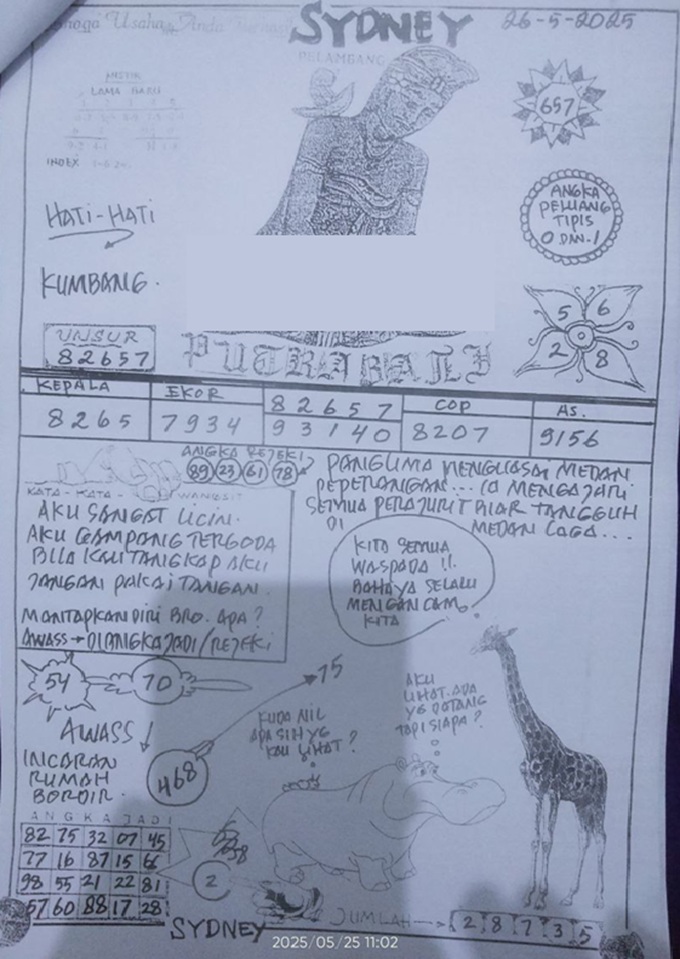 Usaha Anda
SYDNEY
26-5-2025
PELAMBANG
MISTIK
LAMA BARU
INDEX
657
HATI-HATI
ANGKA
PELUANG
TIPIS
0 DAN 1
KUMBANG.
5 6
2 8
UNSUR
82657
PUTRA BALI
KEPALA
EKOR
82657
COP
AS.
8265
7934
93140
8207
9156
ANGKA REJEKI
89 23 61 78
PANGLIMA MENGUASAI MEDAN
PEPERANGAN... IA MENGAJARI
SEMUA PERAJURIT BIAR TANGGUH
DI MEDAN LAGA....
KATA-KATA - WANGSIT
AKU SANGAT LICIN.
AKU GAMPANG TERGODA
BILA KAU TANGKAP AKU
JANGAN PAKAI TANGAN.
MANTAPKAN DIRI BRO. APA?
AWASS → DIANGKA JADI/REJEKI
KITA SEMUA
WASPADA !!
BAHAYA SELALU
MENGANCAM
KITA
54
70
75
AWASS!
468
INCARAN
RUMAH
BORDIR.
KUDA NIL
APA SIH YG
KAU LIHAT?
AKU
LIHAT ADA
YG DATANG
TAPI SIAPA?
ANGKA JADI
82 75 32 07 45
77 16 87 15 66
98 55 21 22 81
57 60 88 17 28
2
SYDNEY
JUMLAH → 2 8 7 3 5
2025/05/25 11:02